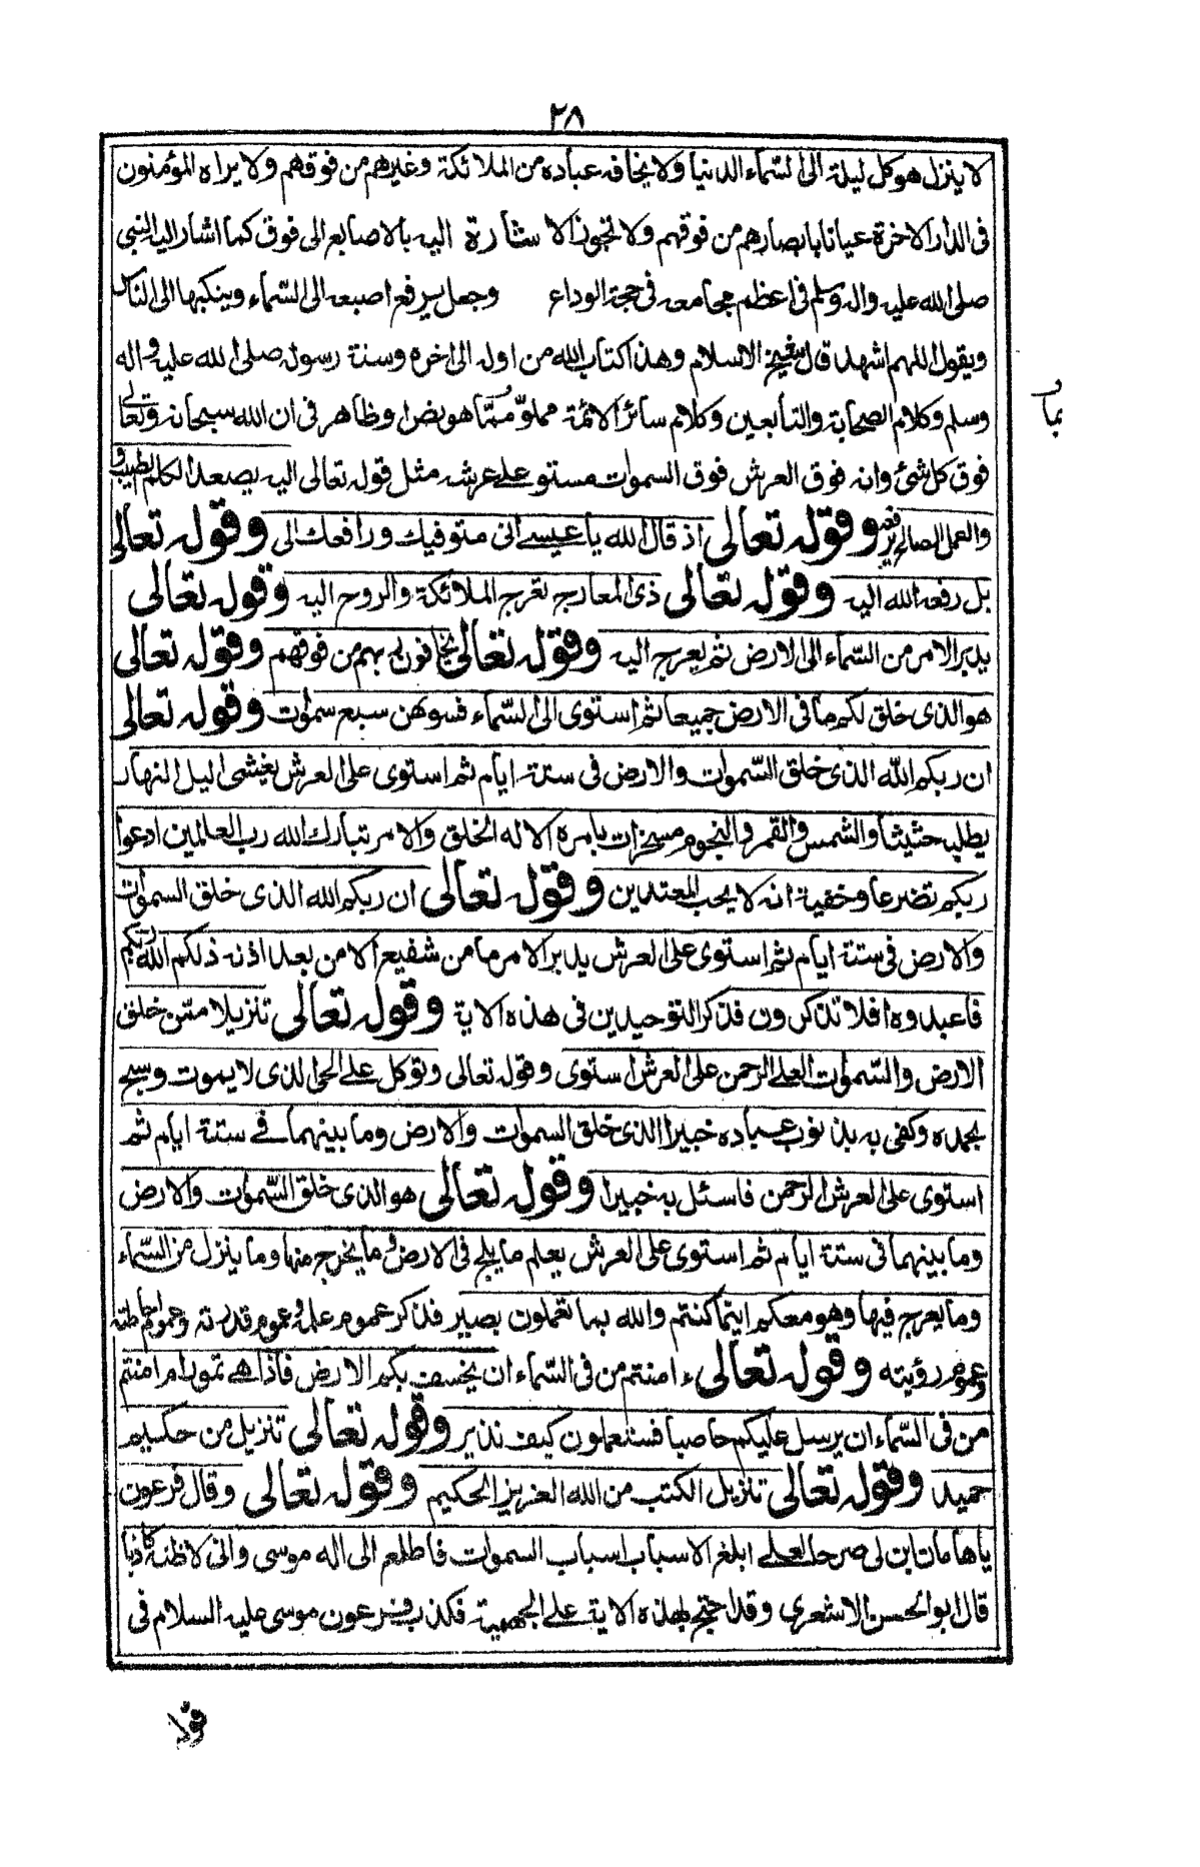 ٢٨
لا ينزل هو كل ليلة الى السّماء الدنيا ولا يخافه عباده من الملائكة وغيرهم من فوقهم ولا يراه المؤمنون
فى الدار الاخرة عيانا بابصارهم من فوقهم ولا تجوز الاشارة اليه بالاصابع الى فوق كما اشار اليه النبى
صلى الله عليه واله وسلم فى اعظم مجامعه فى حجة الوداع وجعل يرفع اصبعه الى السّماء وينكبها الى الناس
ويقول اللهم اشهد قال شيخ الاسلام وهذا كتاب الله من اوله الى اخره وسنة رسوله صلى الله عليه واله
وسلم وكلام الصحابة والتابعين وكلام سائر الائمة مملوّ ممّا هو نص او ظاهر فى ان الله سبحانه وتعالى
بما
فوق كل شئ وانه فوق العرش فوق السموات مستو على عرشه مثل قوله تعالى اليه يصعد الكلم الطيب و
والعمل الصالح يرفعه وقوله تعالى اذ قال الله يا عيسے انى متوفيك ورافعك الى وقوله تعالى
بل رفعه الله اليه وقوله تعالى ذى المعارج تعرج الملائكة والروح اليه وقوله تعالى
يدبر الامر من السّماء الى الارض ثم يعرج اليه وقوله تعالى يخافون ربهم من فوقهم وقوله تعالى
هو الذى خلق لكم ما فى الارض جميعا ثم استوى الى السّماء فسوٰهن سبع سموات وقوله تعالى
ان ربكم اللّه الذى خلق السّموات والارض فى ستة ايام ثم استوى على العرش يغشى اليل النهار
يطلبه حثيثا والشمس والقمر والنجوم مسخرات بامره الا له الخلق والامر تبارك الله رب العالمين ادعوا
ربكم تضرعا وخفية انه لا يحب المعتدين وقوله تعالى ان ربكم الله الذى خلق السموات
والارض فى ستة ايام ثم استوى على العرش يدبر الامر ما من شفيع الا من بعد اذنه ذلكم الله ربكم
فاعبدوه افلا تذكرون فذكر التوحيدين فى هذه الاية وقوله تعالى تنزيلا ممّن خلق
الارض والسّموات العلے الرحمن على العرش استوى وقوله تعالى وتوكل على الحى الذى لا يموت وسبح
بحمده وكفى به بذنوب عباده خبيرا الذى خلق السموات والارض وما بينهما فے ستة ايام ثم
استوى على العرش الرحمن فاسئل به خبيرا وقوله تعالى هو الذى خلق السّموات والارض
وما بينهما فى ستة ايام ثم استوى على العرش يعلم ما يلج فى الارض وما يخرج منها وما ينزل من السّماء
وما يعرج فيها وهو معكم اينما كنتم والله بما تعملون بصير فذكر عموم علمه وعموم قدرته وعموم احاطته
وعموم رؤيته وقوله تعالى ءامنتم من فى السّماء ان يخسف بكم الارض فاذا هے تمور ام امنتم
من فى السّماء ان يرسل عليكم حاصبا فستعلمون كيف نذير وقوله تعالى تنزيل من حكيم
حميد وقوله تعالى تنزيل الكتب من الله العزيز الحكيم وقوله تعالى وقال فرعون
يا هامان ابن لى صرحا لعلے ابلغ الاسباب اسباب السموات فاطلع الى اله موسى وانى لاظنه كاذبا
قال ابو الحسن الاشعرى وقد احتج بهذه الاية على الجهمية فكذب فرعون موسى عليه السلام فى
قوله